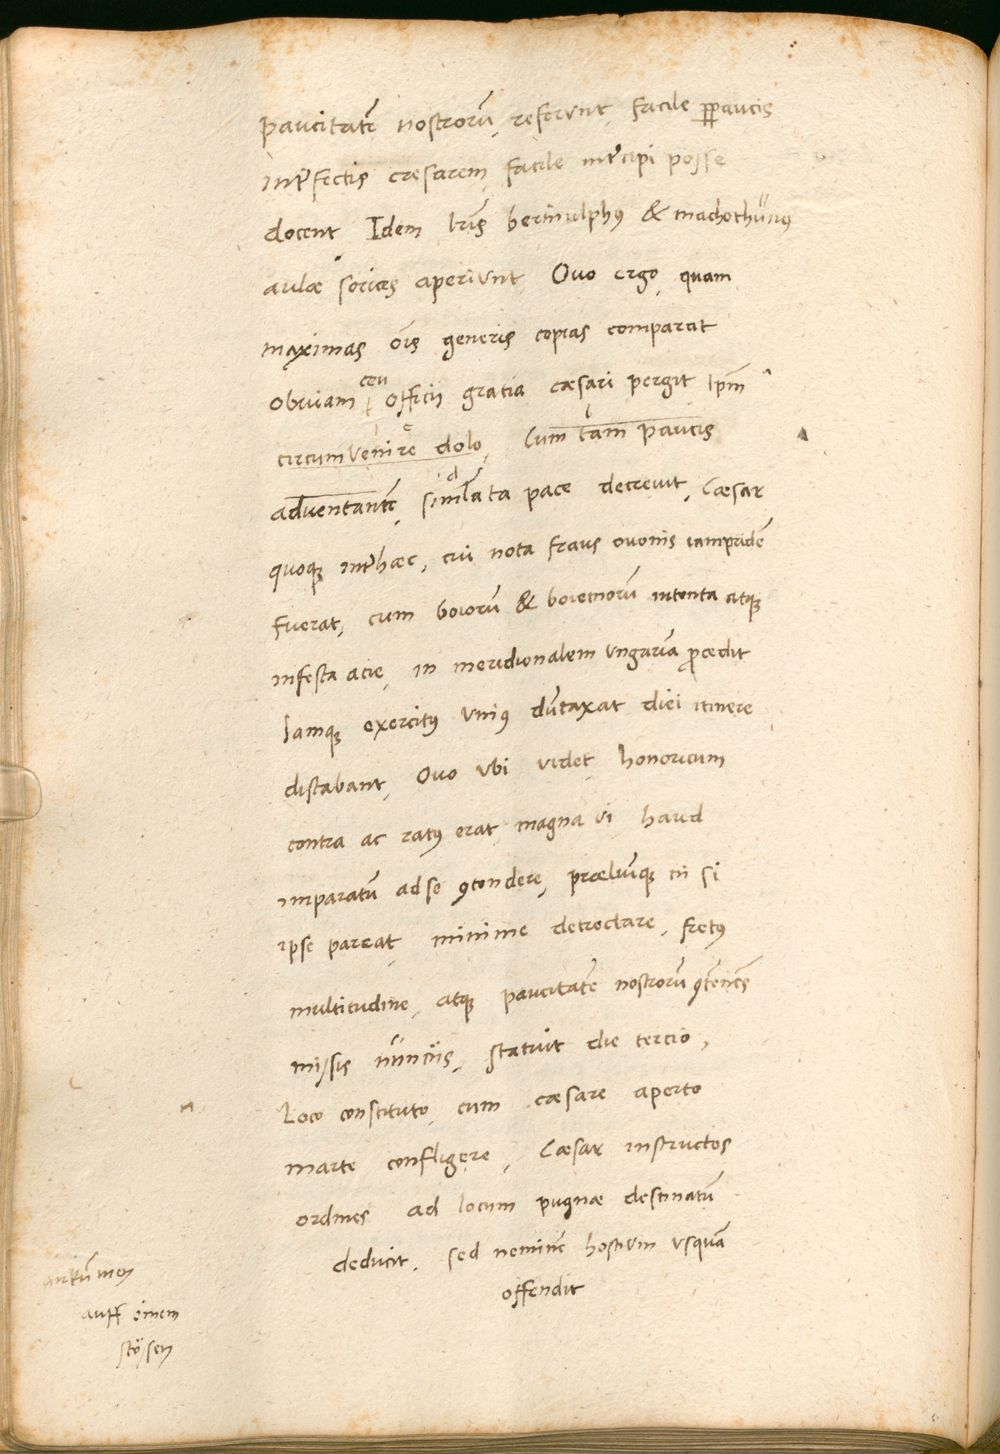 paucitatē nostrorū, referunt, facile ꝑpaucis
int͛fectis cæsarem, facile int͛cipi posse
docent Idem lr̄is berinulphꝰ & machothünꝰ
aulæ soricæs aperiunt, Ovo ergo, quam
maximas oīs generis copias comparat
obviam ceu officii gratia cæsari pergit Ip̄m
circumvenire dolo, Cum tam paucis
adventantē, simlata pace decrevit, Cæsar
quoqꝫ int͛hæc, cui nota fraus ovonis iampridē
fuerat, cum boiorū & boiemorū intenta atqꝫ
infesta acie, in meridionalem ungariā ꝓcedit
Iamqꝫ exercitꝰ uniꝰ dūtaxat diei itinere
distabant, Ovo ubi videt, honoricum
contra ac ratꝰ erat, magna vi haud
imparatū ad se ꝯtendere, præliūqꝫ ni si
ipse pareat, minime detrectare, fretꝰ
multitudine, atqꝫ paucitatē nostrorū ꝯtēnēs
missis nūnciis, statuit die tercio,
Loco constituto, cum cæsare aperto
marte confligere, Cæsar instructos
ordines ad locum pugnæ destinatū
deducit, sed neminē hostium usquā
offendit
ankūmen
auff einem
stösen